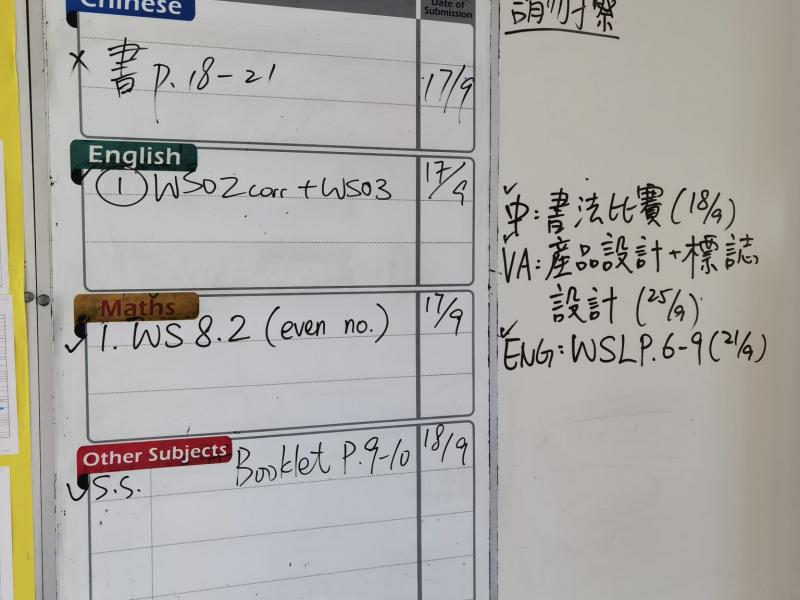 Chinese
Date of
Submission
× 書 p.18-21 17/9
English
① WS02 corr + WS03 17/9
Maths
✓ 1. WS 8.2 (even no.) 17/9
Other Subjects
✓ S.S. Booklet P.9-10 18/9
請勿擦
✓ 中: 書法比賽 (18/9)
✓ VA: 產品設計+標誌
設計 (25/9)
✓ ENG: WSLP.6-9 (21/9)